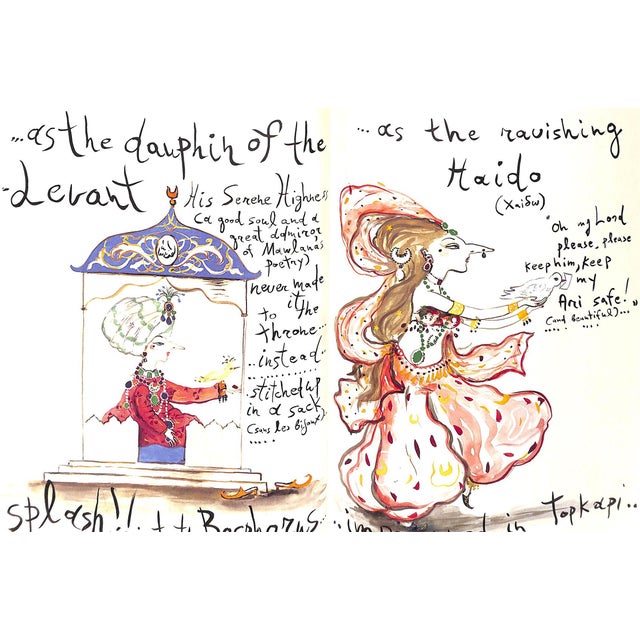 ...as the dauphin of the
Levant
His Serene Highness
(a good soul and a
great admiror
of Mawlana's
poetry)
never made
it
to the
throne...
instead..
stitched up
in a sack
(sans les bijoux)
.....
splash!!
Bosphorus...
...as the ravishing
Haido
(Χαϊδω)
"Oh my Lord
please, please
keep him, keep
my
Ari safe!"
(and beautiful)...
in Topkapi...